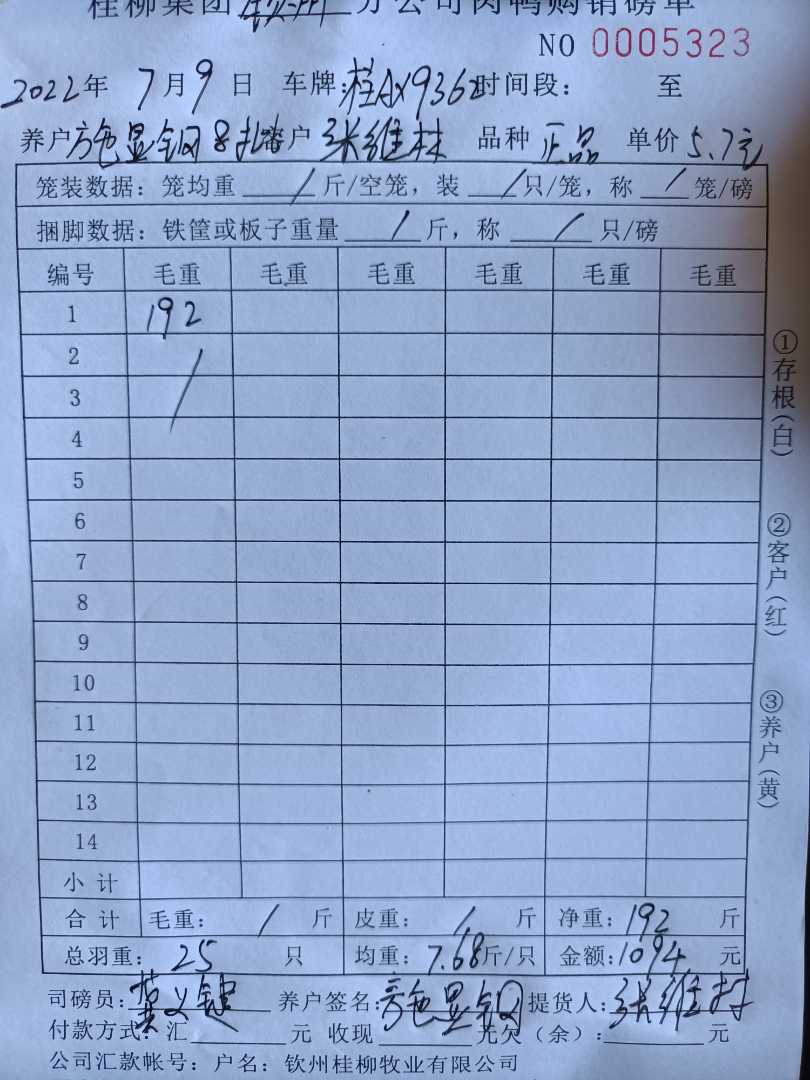 桂柳集团钦州分公司肉鸭购销磅单
NO 0005323
2022年 7月9日 车牌:桂AX9362 时间段: 至
养户 显钢 户 张维林 品种 正品 单价 5.7元
笼装数据: 笼均重 / 斤/空笼, 装 / 只/笼, 称 / 笼/磅
捆脚数据: 铁筐或板子重量 / 斤, 称 / 只/磅
编号 毛重 毛重 毛重 毛重 毛重 毛重
1 192
2 /
3
4
5
6
7
8
9
10
11
12
13
14
小计
合计 毛重: / 斤 皮重: / 斤 净重: 192 斤
总羽重: 25 只 均重: 7.68斤/只 金额:1094 元
司磅员: 养户签名: 显钢 提货人: 张维林
付款方式: 汇 元 收现 元欠(余): 元
公司汇款帐号: 户名: 钦州桂柳牧业有限公司
①存根(白)
②客户(红)
③养户(黄)